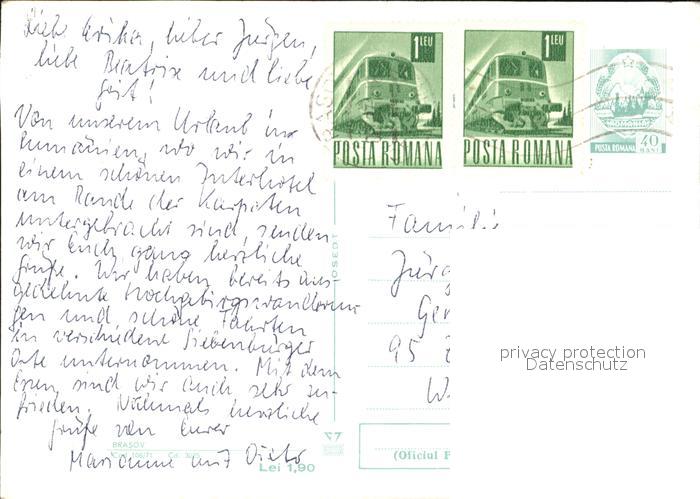 Liebe Erika, lieber Jürgen,
liebe Beatrix und liebe
Von unserem Urlaub in
Rumänien, wo wir in
einem schönen Interhotel
am Rande der Karpaten
untergebracht sind, senden
wir Euch ganz herzliche
Grüße. Wir haben bereits aus-
gedehnte Hochgebirgswanderun-
gen und schöne Fahrten
in verschiedene Siebenbürger
Orte unternommen. Mit dem
Essen sind wir auch sehr zu-
frieden. Nochmals herzliche
Grüße von Eurer
Marianne mit Dieter
1 LEU
POSTA ROMANA
1 LEU
POSTA ROMANA
POSTA ROMANA
40
BANI
Famili
Jürg
Ger
95
W
privacy protection
Datenschutz
BRAȘOV
Lei 1,90
(Oficiul P